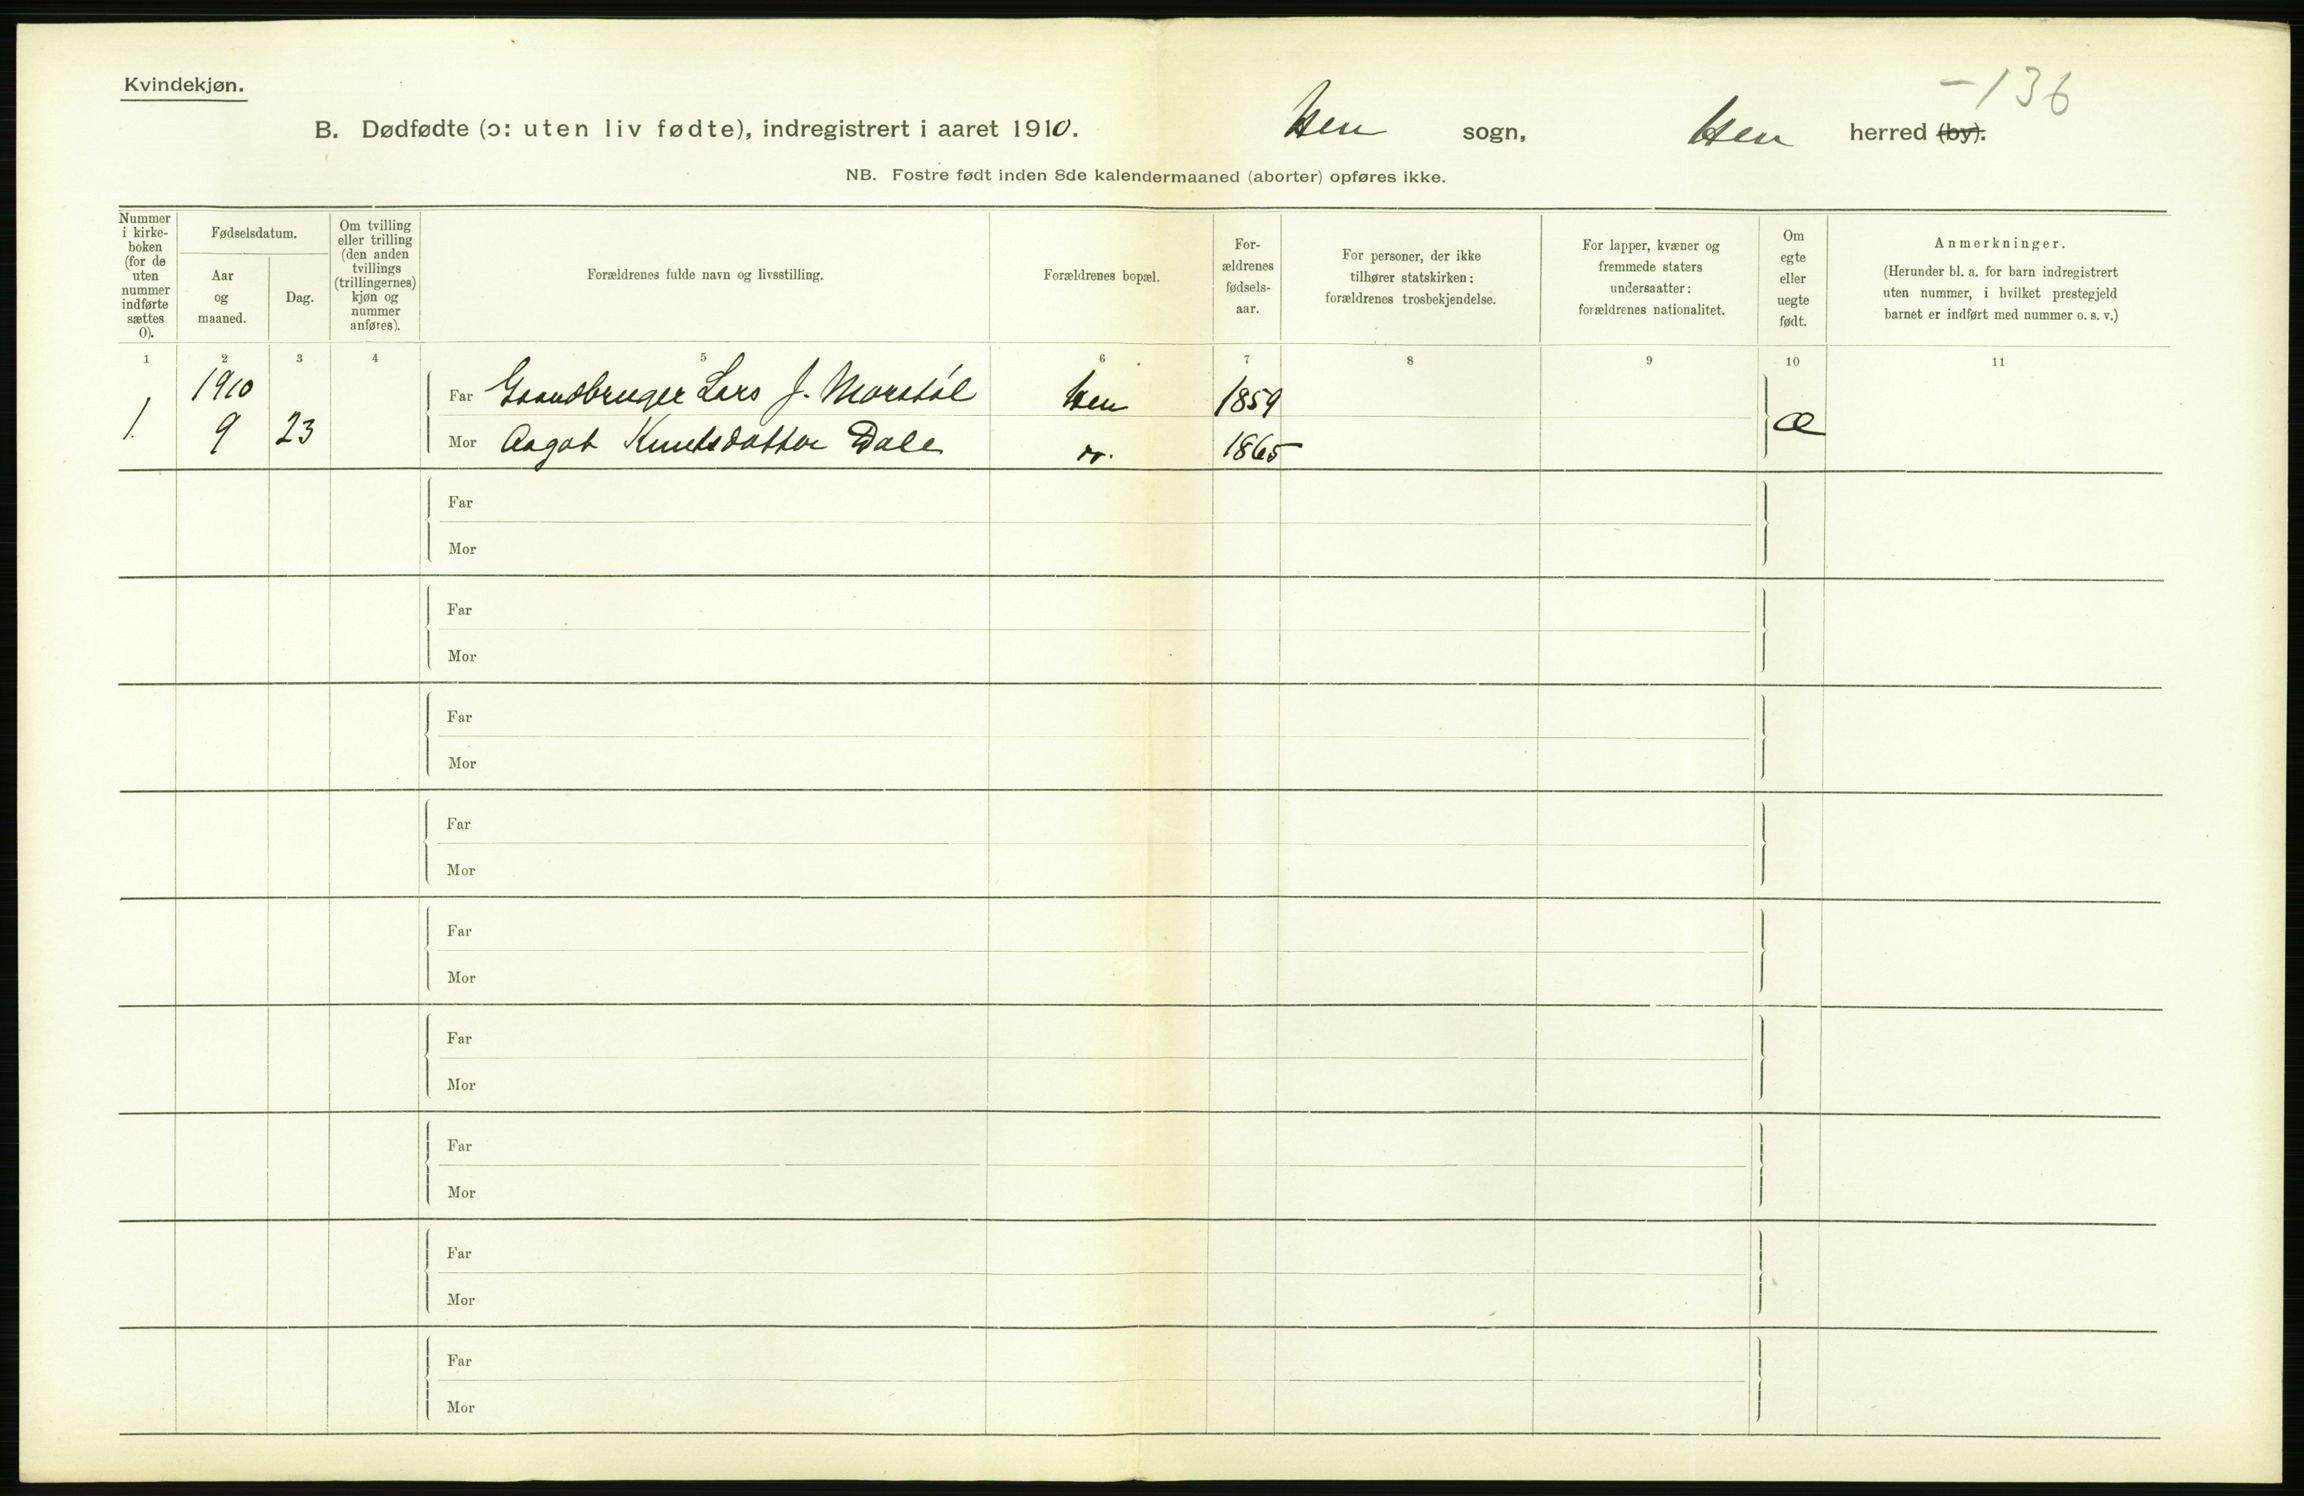 Kvindekjøn.
-136
B. Dødfødte (ɔ: uten liv fødte), indregistrert i aaret 1910. Hen sogn, Hen herred (by).
NB. Fostre født inden 8de kalendermaaned (aborter) opføres ikke.
Nummer
i kirke-
boken
(for de
uten
nummer
indførte
sættes
0).
Fødselsdatum.
Aar
og
maaned.
Dag.
Om tvilling
eller trilling
(den anden
tvillings
(trillingernes)
kjøn og
nummer
anføres).
Forældrenes fulde navn og livsstilling.
Forældrenes bopæl.
For-
ældrenes
fødsels-
aar.
For personer, der ikke
tilhører statskirken:
forældrenes trosbekjendelse.
For lapper, kvæner og
fremmede staters
undersaatter:
forældrenes nationalitet.
Om
egte
eller
uegte
født.
Anmerkninger.
(Herunder bl. a. for barn indregistrert
uten nummer, i hvilket prestegjeld
barnet er indført med nummer o. s. v.)
1 2 3 4 5 6 7 8 9 10 11
1910
Far Gaardbruger Lars J. Morstøl Hen 1859
1. 9 23 Æ
Mor Aagot Knutsdatter Dale 1865
Far
Mor
Far
Mor
Far
Mor
Far
Mor
Far
Mor
Far
Mor
Far
Mor
Far
Mor
Far
Mor